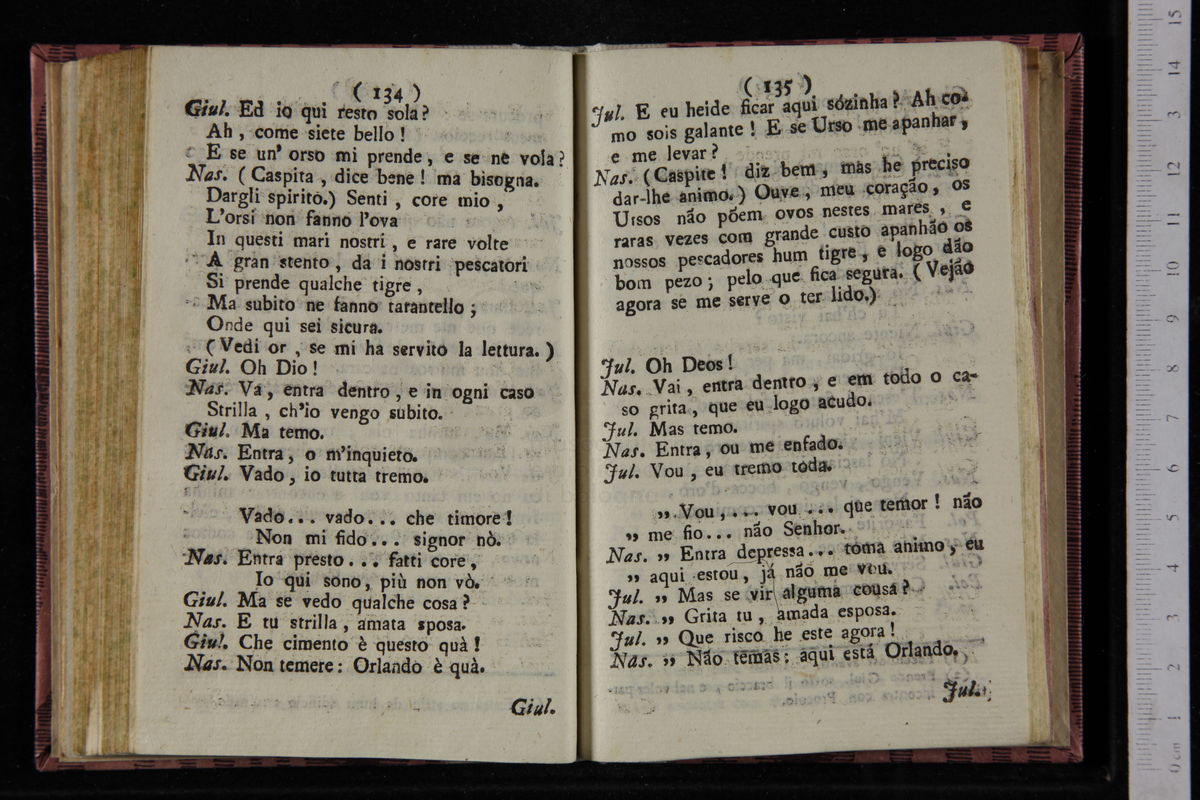 ( 134 )
Giul. Ed io qui resto sola?
Ah, come siete bello!
E se un' orso mi prende, e se ne vola?
Nas. (Caspita, dice bene! ma bisogna.
Dargli spirito.) Senti, core mio,
L'orsi non fanno l'ova
In questi mari nostri, e rare volte
A gran stento, da i nostri pescatori
Si prende qualche tigre,
Ma subito ne fanno tarantello;
Onde qui sei sicura.
(Vedi or, se mi ha servito la lettura.)
Giul. Oh Dio!
Nas. Va, entra dentro, e in ogni caso
Strilla, ch'io vengo subito.
Giul. Ma temo.
Nas. Entra, o m'inquieto.
Giul. Vado, io tutta tremo.
Vado... vado... che timore!
Non mi fido... signor nò.
Nas. Entra presto... fatti core,
Io qui sono, più non vò.
Giul. Ma se vedo qualche cosa?
Nas. E tu strilla, amata sposa.
Giul. Che cimento è questo quà!
Nas. Non temere: Orlando è quà.
Giul.
( 135 )
Jul. E eu heide ficar aqui sózinha? Ah co-
mo sois galante! E se Urso me apanhar,
e me levar?
Nas. (Caspite! diz bem, mas he preciso
dar-lhe animo.) Ouve, meu coração, os
Ursos não põem ovos nestes mares, e
raras vezes com grande custo apanhão os
nossos pescadores hum tigre, e logo dão
bom pezo; pelo que fica segura. (Vejão
agora se me serve o ter lido.)
Jul. Oh Deos!
Nas. Vai, entra dentro, e em todo o ca-
so grita, que eu logo acudo.
Jul. Mas temo.
Nas. Entra, ou me enfado.
Jul. Vou, eu tremo toda.
„ Vou,... vou... que temor! não
„ me fio... não Senhor.
Nas. „ Entra depressa... toma animo, eu
„ aqui estou, já não me vou.
Jul. „ Mas se vir alguma cousa?
Nas. „ Grita tu, amada esposa.
Jul. „ Que risco he este agora!
Nas. „ Não temas: aqui está Orlando.
Jul.
0 cm 1 2 3 4 5 6 7 8 9 10 11 12 13 14 15